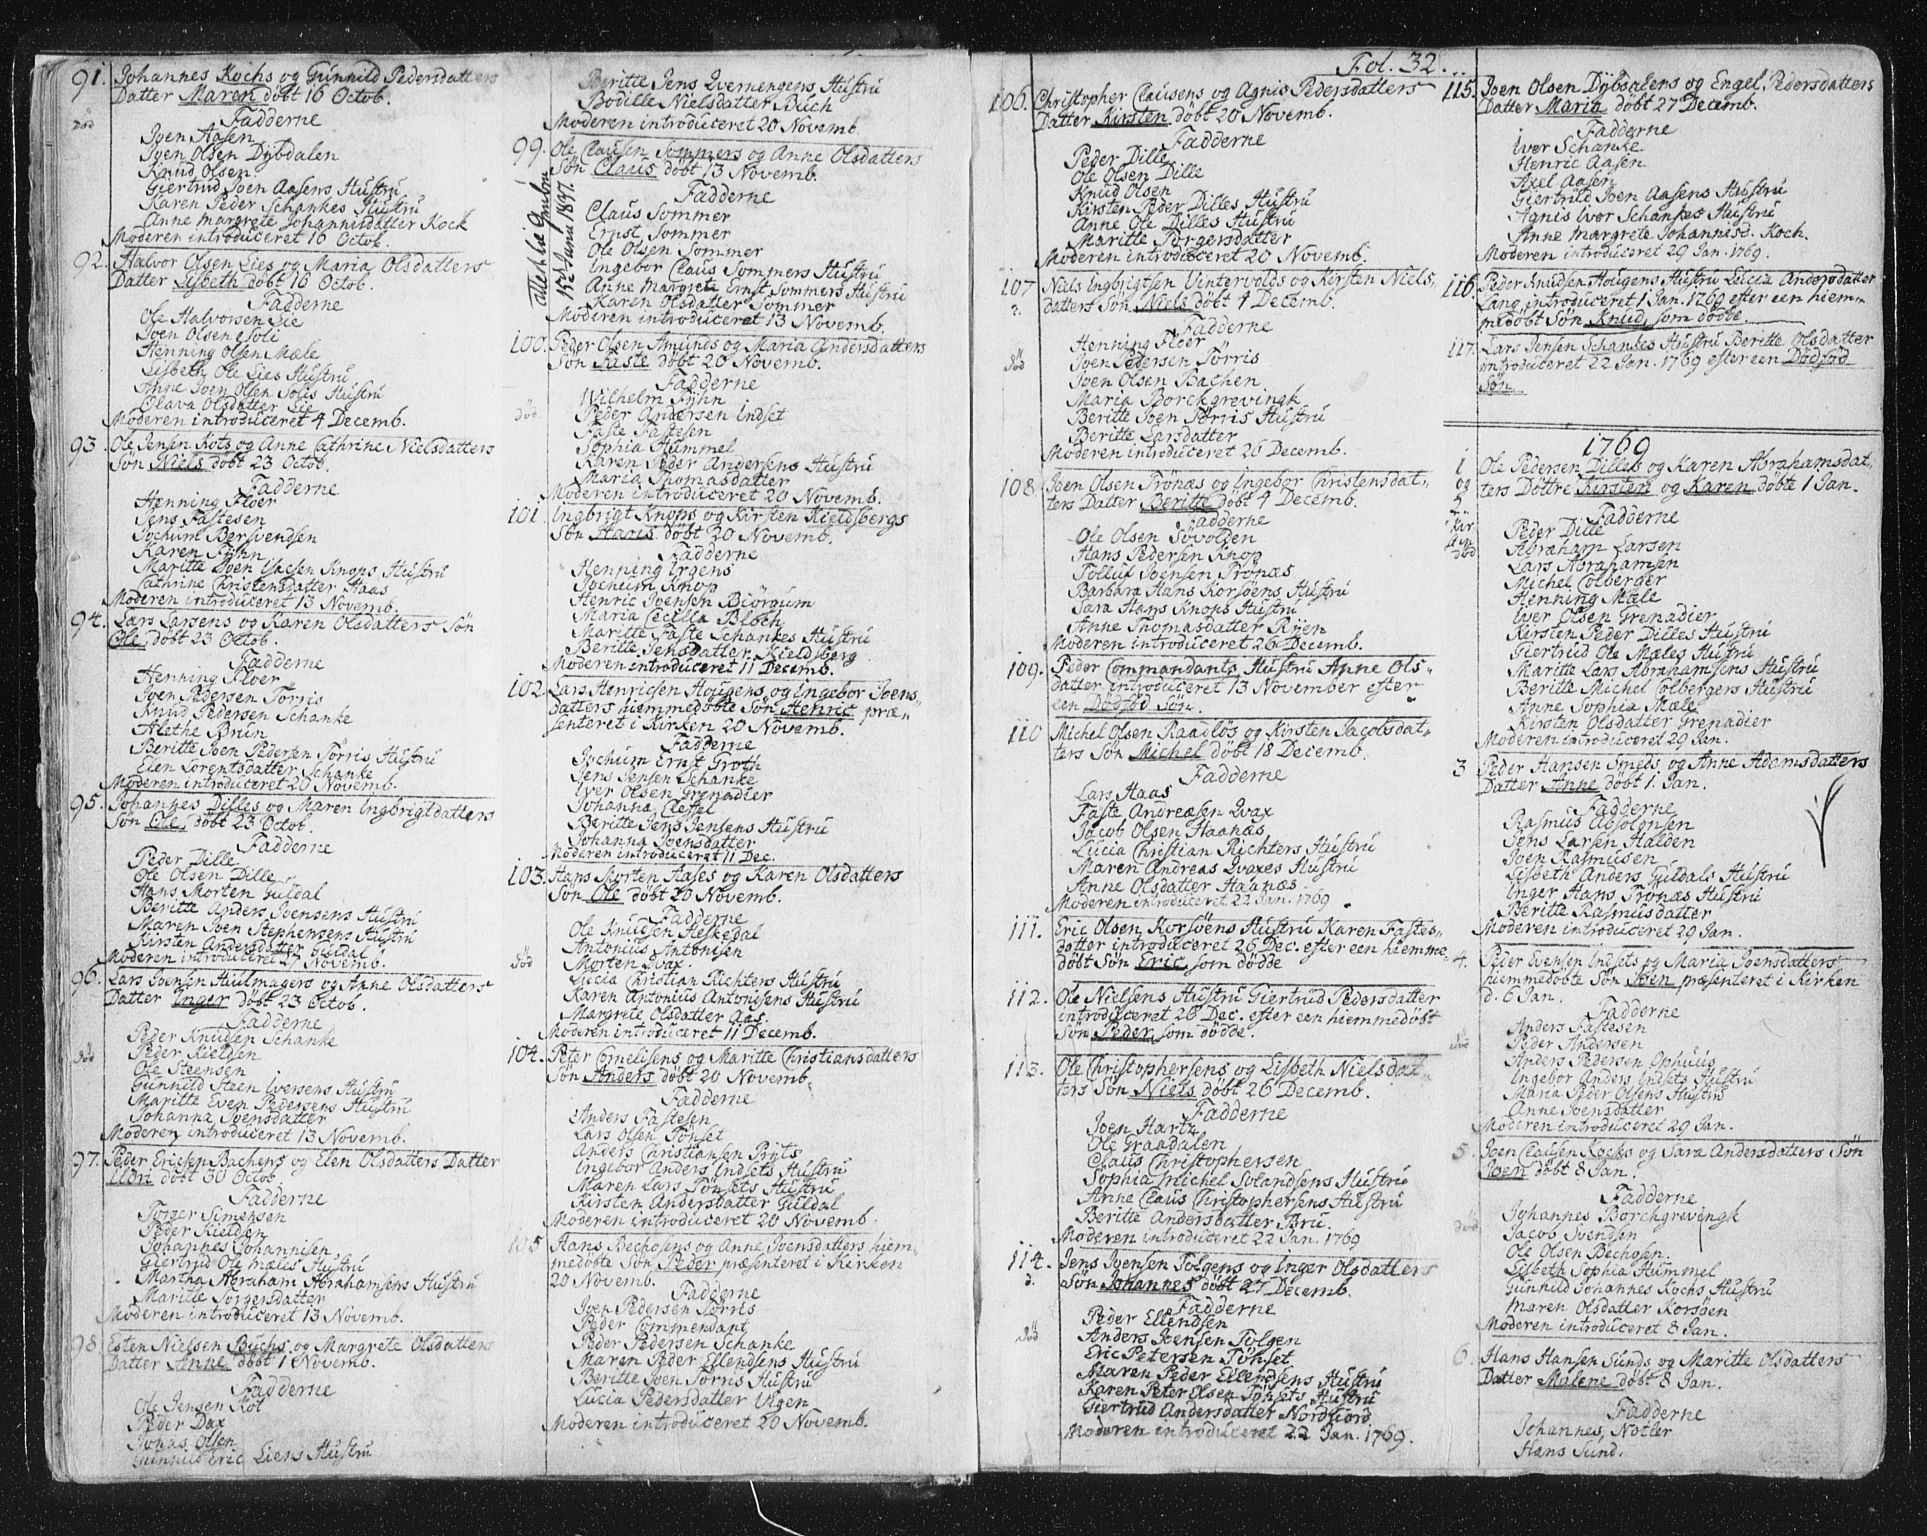 91. Johannes Kochs og Gunnild Pedersdatters
Datter Maren döbt 16 Octob.
död
Fadderne
Joen Aasen
Joen Olsen Dybdalen
Knud Olsen
Giertrud Joen Aasens Hustru
Karen Peder Schankes Hustru
Anne Margrete Johannisdatter Kock
Moderen introduceret 16 Octob.
92. Halvor Olsen Lies og Maria Olsdatters
Datter Lisbeth döbt 16 Octob.
Fadderne
Ole Halvorsen Lie
Joen Olsen Soli
Henning Olsen Mæle
Lisbeth Ole Lies Hustru
Anne Joen Olsen Solis Hustru
Olava Olsdatter Lie
Moderen introduceret 4 Decemb.
93. Ole Jensen Kots og Anne Cathrine Nielsdatters
Sön Niels döbt 23 Octob.
Fadderne
Henning Floer
Jens Fastesen
Jochum Bersvendsen
Karen Fyhn
Maritte Joen Isacsen Knops Hustru
Cathrine Christensdatter Haas
Moderen introduceret 13 Novemb.
94. Lars Larsens og Karen Olsdatters Sön
Ole döbt 23 Octob.
Fadderne
Henning Floer
Joen Pedersen Törris
Knud Pedersen Schanke
Alethe Brun
Beritte Joen Pedersen Törris Hustru
Elen Lorentsdatter Schanke
Moderen introduceret 20 Novemb.
95. Johannes Dilles og Maren Ingbrigtdatters
Sön Ole döbt 23 Octob.
Fadderne
Peder Dille
Ole Olsen Dille
Hans Morten Guldal
Beritte Anders Joensens Hustru
Maren Joen Stephensens Hustru
Kirsten Andersdatter Guldal
Moderen introduceret 27 Novemb.
96. Lars Joensen Huulmagers og Anne Olsdatters
Datter Inger döbt 23 Octob.
Fadderne
Peder Knudsen Schanke
död
Peder Kieldsen
Ole Steensen
Gunnild Steen Iversens Hustru
Maritte Even Pedersens Hustru
Johanna Joensdatter
Moderen introduceret 13 Novemb.
97. Peder Ericsen Bachens og Elen Olsdatters Datter
Eldri döbt 30 Octob.
Fadderne
Torger Simensen
Peder Kieldsen
Johannes Johannisen
Giertrud Ole Mæles Hustru
Martha Abraham Abrahamsens Hustru
Maritte Torgersdatter
Moderen introduceret 13 Novemb.
98. Esten Nielsen Buchs og Margrete Olsdatters
Datter Anne döbt 1 Novemb.
Fadderne
Ole Jensen Kot
Peder Dax
Jonas Olsen
Gunnild Eric Liens Hustru
Beritte Jens Qvernengens Hustru
Bodille Nielsdatter Buch
Moderen introduceret 20 Novemb.
99. Ole Clausen Sommers og Anne Olsdatters
Sön Claus döbt 13 Novemb.
Fadderne
Claus Sommer
Ernst Sommer
Ole Olsen Sommer
Ingebor Claus Sommers Hustru
Anne Margrete Ernst Sommers Hustru
Karen Olsdatter Sommer
Moderen introduceret 13 Novemb.
100. Peder Olsen Amunds og Maria Andersdatters
Sön Faste döbt 20 Novemb.
Fadderne
Wilhelm Fyhn
död
Peder Andersen Indset
Faste Fastesen
Sophia Hummel
Karen Peder Andersens Hustru
Maria Thomasdatter
Moderen introduceret 20 Novemb.
101. Ingbrigt Knops og Kirsten Kieldsbergs
Sön Hans döbt 20 Novemb.
Fadderne
Henning Irgens
Jochum Knop
Henric Joensen Biörgum
Maria Cecilia Bloch
Maritte Faste Schankes Hustru
Beritte Jensdatter Kieldsberg
Moderen introduceret 11 Decemb.
102. Lars Henricsen Hougens og Ingebor Joens-
datters hiemmedöbte Sön Henric præ-
senteret i Kirken 20 Novemb.
Fadderne
Jochum Ernst Groth
Jens Jensen Schanke
Iver Olsen Grenadier
Johanna Clefel
Beritte Jens Jensens Hustru
Johanna Joensdatter
Moderen introduceret 11 Dec.
103. Hans Morten Aases og Karen Olsdatters
Sön Ole döbt 20 Novemb.
Fadderne
Ole Knudsen Heskedal
Antonius Antonisen
död
Morten Qvax
Lucia Christian Richters Hustru
Karen Antonius Antonisens Hustru
Margrete Olsdatter Aas.
Moderen introduceret 11 Decemb.
104. Peter Cornelisens og Maritte Christiansdatters
Sön Anders döbt 20 Novemb.
Fadderne
Anders Fastesen
Lars Olsen Tönset
Anders Christiansen Pryts
Ingebor Anders Indsets Hustru
Maren Lars Tönsets Hustru
Kirsten Andersdatter Guldal
Moderen introduceret 20 Novemb.
105 Hans Bechosens og Anne Joensdatters hiem-
medöbte Sön Peder præsenteret i Kirken
20 Novemb.
Fadderne
Joen Pedersen Törris
Peder Commendant
Peder Pedersen Schanke
Maren Peder Ellendsens Hustru
Beritte Joen Törris Hustru
Lucia Pedersdatter Vigen
Moderen introduceret 20 Novemb.
Fol. 32.
106. Christopher Clausens og Agnis Pedersdatters
Datter Kirsten döbt 20 Novemb.
Fadderne
Peder Dille
Ole Olsen Dille
Knud Olsen
Kirsten Peder Dilles Hustru
Anne Ole Dilles Hustru
Maritte Torgersdatter
Moderen introduceret 20 Novemb.
107 Niels Ingbrigtsen Vintervolds og Kirsten Niels-
datters Sön Niels döbt 4 Decemb.
Fadderne
Henning Floer
död
Joen Pedersen Törris
Joen Olsen Bachen
Maria Borckgrevingk
Beritte Joen Törris Hustru
Beritte Larsdatter
Moderen introduceret 26 Decemb.
108. Joen Olsen Trönæs og Ingebor Christensdat-
ters Datter Beritte döbt 4 Decemb.
Fadderne
Ole Olsen Sövolden
Hans Pedersen Knop
Tolluf Joensen Trönæs
Barbara Hans Korsöens Hustru
Sara Hans Knops Hustru
Anne Thomasdatter Ryen
Moderen introduceret 26 Decemb.
109. Peder Commandants Hustru Anne Ols-
datter introduceret 13 November efter
een Dödföd Sön.
110 Michel Olsen Raadlös og Kirsten Jacobsdat-
ters Sön Michel döbt 18 Decemb.
Fadderne
Lars Haas
Faste Andreæsen Qvax
Jacob Olsen Haanæs
Lucia Christian Richters Hustru
Maren Andreas Qvaxes Hustru
Anne Olsdatter Haanæs
Moderen introduceret 22 Jan. 1769
111. Eric Olsen Korsöens Hustru Karen Fastes-
datter introduceret 26 Dec. efter een hiemme-
döbt Sön Eric som dödde
112. Ole Nielsens Hustru Giertrud Pedersdatter
introduceret 26 Dec. efter een hiemmedöbt
Sön Peder som dödde.
113. Ole Christophersens og Lisbeth Nielsdat-
ters Sön Niels döbt 26 Decemb.
Fadderne
Joen Hartz
Ole Graadalen
Claus Christophersen
Sophia Michel Solandsens Hustru
Anne Claus Christophersens Hustru
Beritte Andersdatter Bru
Moderen introduceret 22 Jan. 1769
114. Jens Joensen Tolgens og Inger Olsdatters
Sön Johannes döbt 27 Decemb.
Fadderne
Peder Ellendsen
död
Anders Joensen Tolgen
Eric Petersen Tönset
Maren Peder Ellendsens Hustru
Karen Peter Elsen Tönsets Hustru
Giertrud Andersdatter Nordfiord
Moderen introduceret 22 Jan. 1769.
115. Joen Olsen Dybdalens og Engel Pedersdatters
Datter Maria döbt 27 Decemb.
Fadderne
Iver Schanke
Henric Aasen
Axel Aasen
Giertrud Joen Aasens Hustru
Agnis Iver Schankes Hustru
Anne Margrete Johannisd. Koch.
Moderen introduceret 29 Jan. 1769.
116. Peder Knudsen Hougens Hustru Lucia Andersdatter
Lang introduceret 1 Jan. 1769 efter een hiem-
medöbt Sön Knud som dödde
117. Lars Jensen Schankes Hustru Beritte Olsdatter
introduceret 22 Jan. 1769 efter een Dödföd
Sön
1769
1 og 2. Ole Pedersen Dilles og Karen Abrahamsdat-
ters Döttre Kirsten og Karen döbte 1 Jan.
Fadderne
Peder Dille
död
Abraham Larsen
Lars Abrahamsen
Michel Colberger
Henning Mæle
Iver Olsen Grenadier
Kirsten Peder Dilles Hustru
Giertrud Ole Mæles Hustru
Maritte Lars Abrahamsens Hustru
Beritte Michel Colbergers Hustru
Anne Sophia Mæle
Kirsten Olsdatter Grenadier
Moderen introduceret 29 Jan.
3 Peder Hansen Smeds og Anne Adamsdatters
Datter Anne döbt 1. Jan.
Fadderne
Rasmus Absolonsen
Jens Larsen Halden
Joen Rasmusen
Lisbeth Anders Guldals Hustru
Inger Hans Trönæs Hustru
Beritte Rasmusdatter
Moderen introduceret 29 Jan.
4. Peder Joensen Indsets og Maria Joensdatters
hiemmedöbte Sön Joen præsenteret i Kirken
d. 6 Jan.
Fadderne
Anders Fastesen
död
Peder Andersen
Anders Pedersen Ophuus
Ingebor Anders Indsets Hustru
Maria Peder Olsens Hustru
Anne Joensdatter
Moderen introduceret 29 Jan.
5. Joen Clausen Kochs og Sara Andersdatters Sön
Joen döbt 8 Jan.
Fadderne
Johannes Borchgrevingk
död
Jacob Svendsen
Ole Olsen Bechosen
Lisbeth Sophia Hummel
Gunnild Johannes Kochs Hustru
Maren Olsdatter Korsöen
Moderen introduceret 8 Jan.
6. Hans Hansen Sunds og Maritte Olsdatters
Datter Malene döbt 8 Jan.
Fadderne
Johannes Notler
Hans Sund.